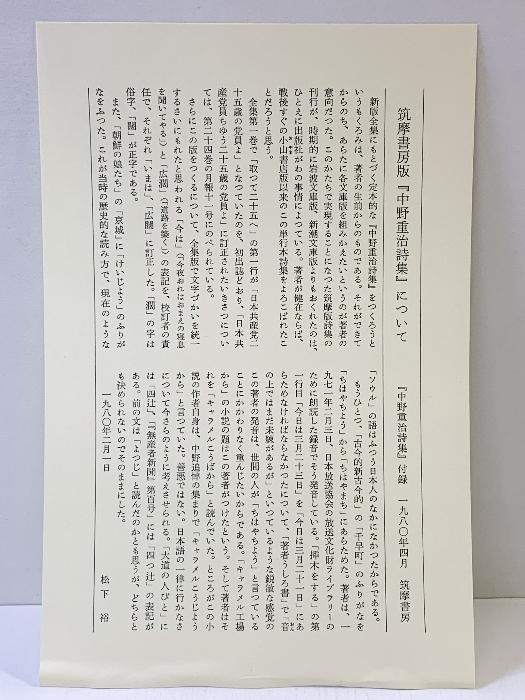 筑摩書房版『中野重治詩集』について
『中野重治詩集』付録　一九八〇年四月　筑摩書房
新版全集にもとづく定本的な『中野重治詩集』をつくろうと
いうもくろみは、著者の生前からのものである。それができて
からのち、あらたに各文庫版を組みかえたいというのが著者の
意向だった。このかたちで実現することになつた筑摩版詩集の
刊行が、時期的に岩波文庫版、新潮文庫版よりもおくれたのは、
ひとえに出版社がわの事情によっている。著者が健在ならば、
戦後すぐの小山書店版以来のこの単行本詩集をよろこばれたこ
とだろうと思う。
全集第一巻で「取つて二十五へ」の第一行が「日本共産党二
十五歳の党員よ」となつていたのを、初出誌どおり、「日本共
産党員ちゆう二十五歳の党員よ」に訂正されたいきさつについ
ては、第二十四巻の月報十一号にのべられている。
さらにこの版をつくるについて、全集版で文字づかいを統一
するさいにもれたと思われる「今は」（「今夜おれはおまえの寝息
を聞いてやる」）と「広濶」（「道路を築く」）の表記を、校訂者の責
任で、それぞれ「いまは」、「広闊」に訂正した。「濶」の字は
俗字、「闊」が正字である。
また、「朝鮮の娘たち」の「京城」に「けいじょう」のふりが
なをふつた。これが当時の歴史的な読み方で、現在のような
「ソウル」の語はふつう日本人のなかになかつたからである。
もうひとつ、「古今的新古今的」の「千早町」のふりがなを
「ちはやちよう」から「ちはやまち」にあらためた。著者は、一
九七一年二月三日、日本放送協会の放送文化財ライブラリーの
ために朗読した録音でそう発音している。「挿木をする」の第
一行目「今日は三月二十三日」を「今日は三月二十一日」にあ
らためなければならなかつたについて、「著者うしろ書」で「音
の上ではまだ未練があるが」といつているような鋭敏な感覚の
この著者の発音は、世間の人が「ちはやちよう」と言つている
ことにかかわりなく尊んじたいからである。「キャラメル工場
から」の小説の題はこの著者がつけたという。そして著者はそ
れを「キャラメルこうばから」と読んでいた。ところがこの小
説の作者自身は、中野追悼の集まりで「キャラメルこうじょう
から」と言つていた。善悪ではない。日本語の一律に行かなさ
について今さらのように考えさせられる。「大道の人びと」に
は「四辻」、「『無産者新聞』第百号」には「四つ辻」の表記が
ある。前の文は「よつじ」と読んだのかとも思うが、どちらと
も決められないのでそのままにした。
一九八〇年二月一日
松下　裕